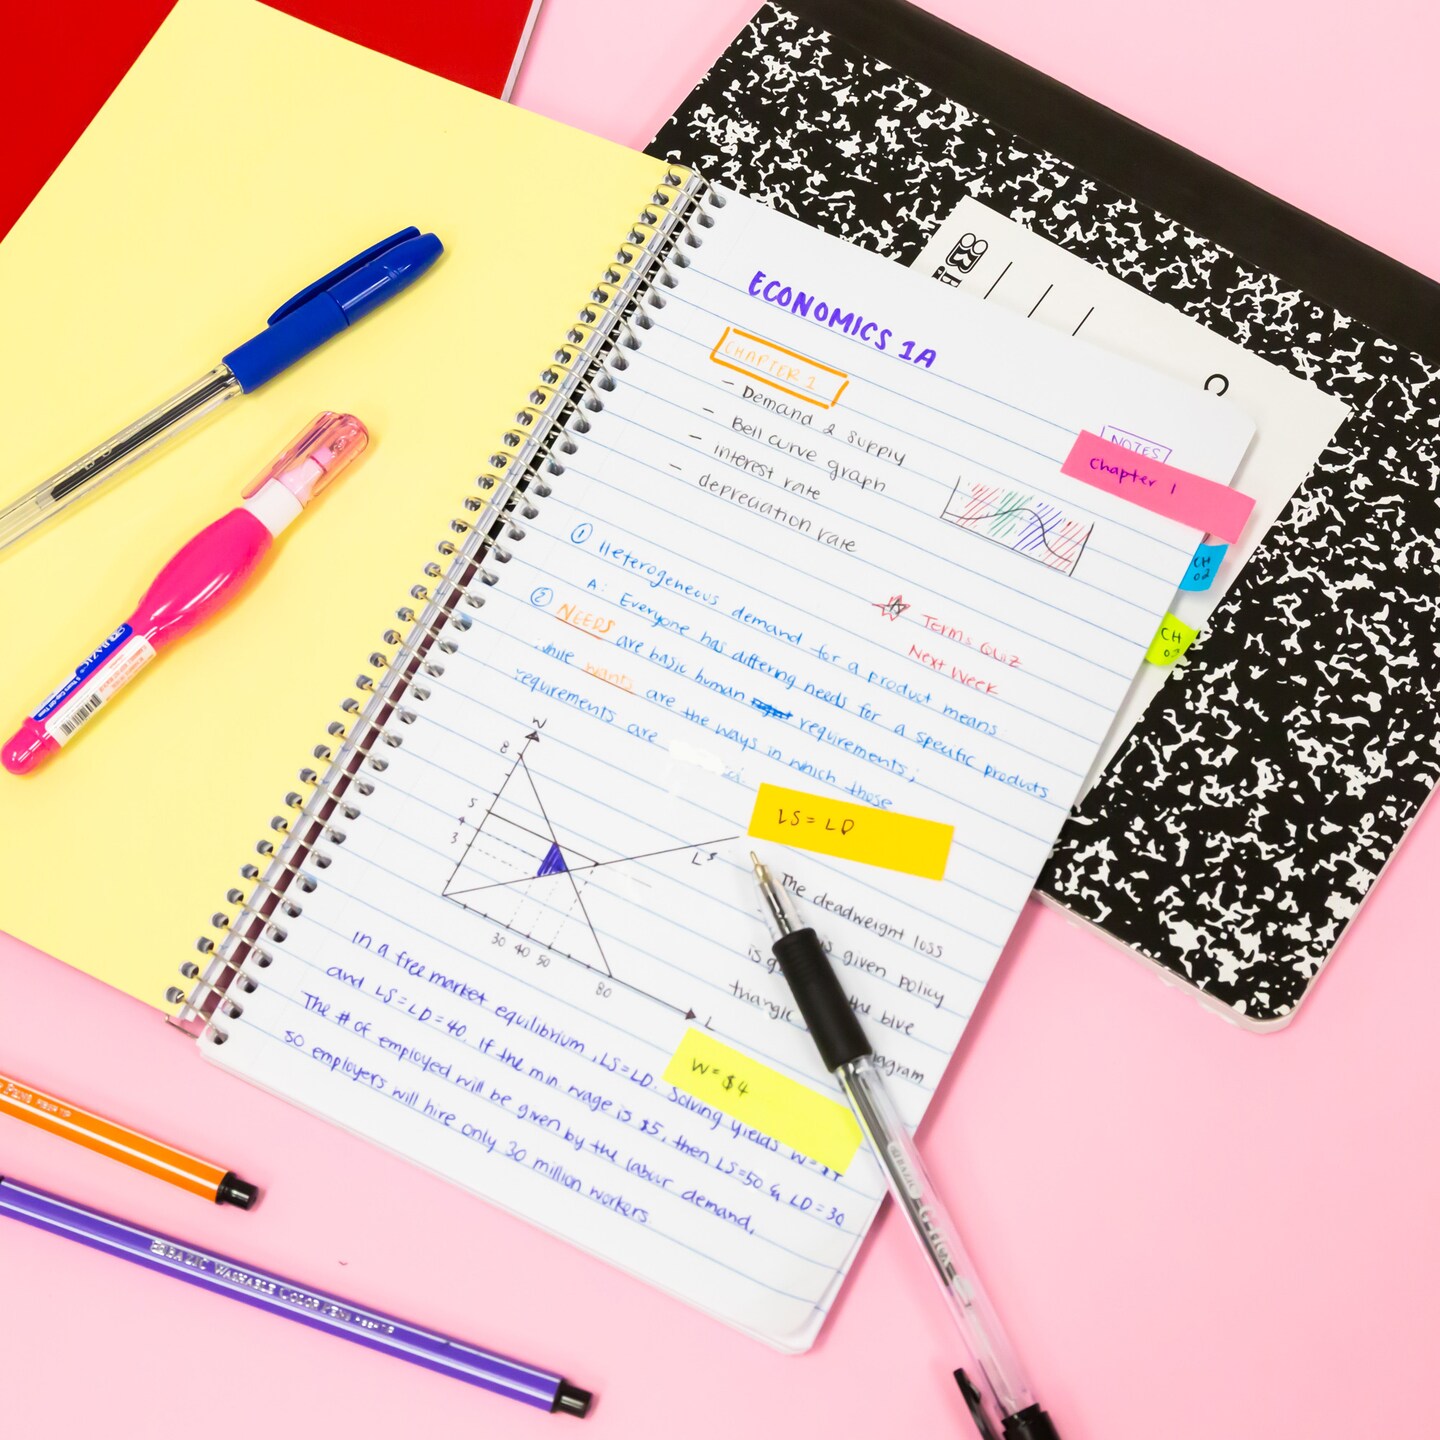 ECONOMICS 1A
CHAPTER 1
- Demand & supply
- Bell curve graph
- interest rate
- depreciation rate
NOTES
Chapter 1
CH 02
CH
① Heterogeneous demand for a product means
A: Everyone has differing needs for a specific products
② NEEDS are basic human requirements;
while wants are the ways in which those
requirements are
Terms Quiz
Next Week
W
8
5
4
3
30 40 50
80
L
LS
LS = LD
The deadweight loss
is given policy
triangle the blue
diagram
W = $4
In a free market equilibrium, LS=LD. Solving yields W=$4
and LS=LD=40. If the min wage is $5, then LS=50 & LD=30
The # of employed will be given by the labour demand,
so employers will hire only 30 million workers
BAZIC
BAZIC WASHABLE COLOR PENS
PENS